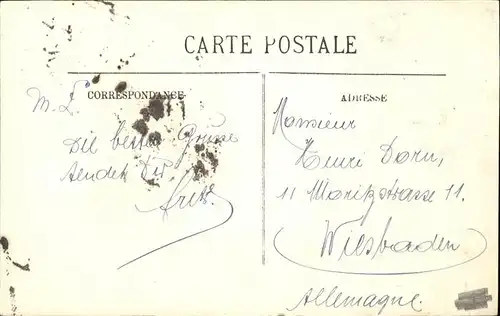 CARTE POSTALE
CORRESPONDANCE
M. L.
Die besten Grüsse
sendet Dir
Fritz
ADRESSE
Monsieur
Henri Dorn,
11 Moritzstrasse 11.
Wiesbaden
Allemagne.